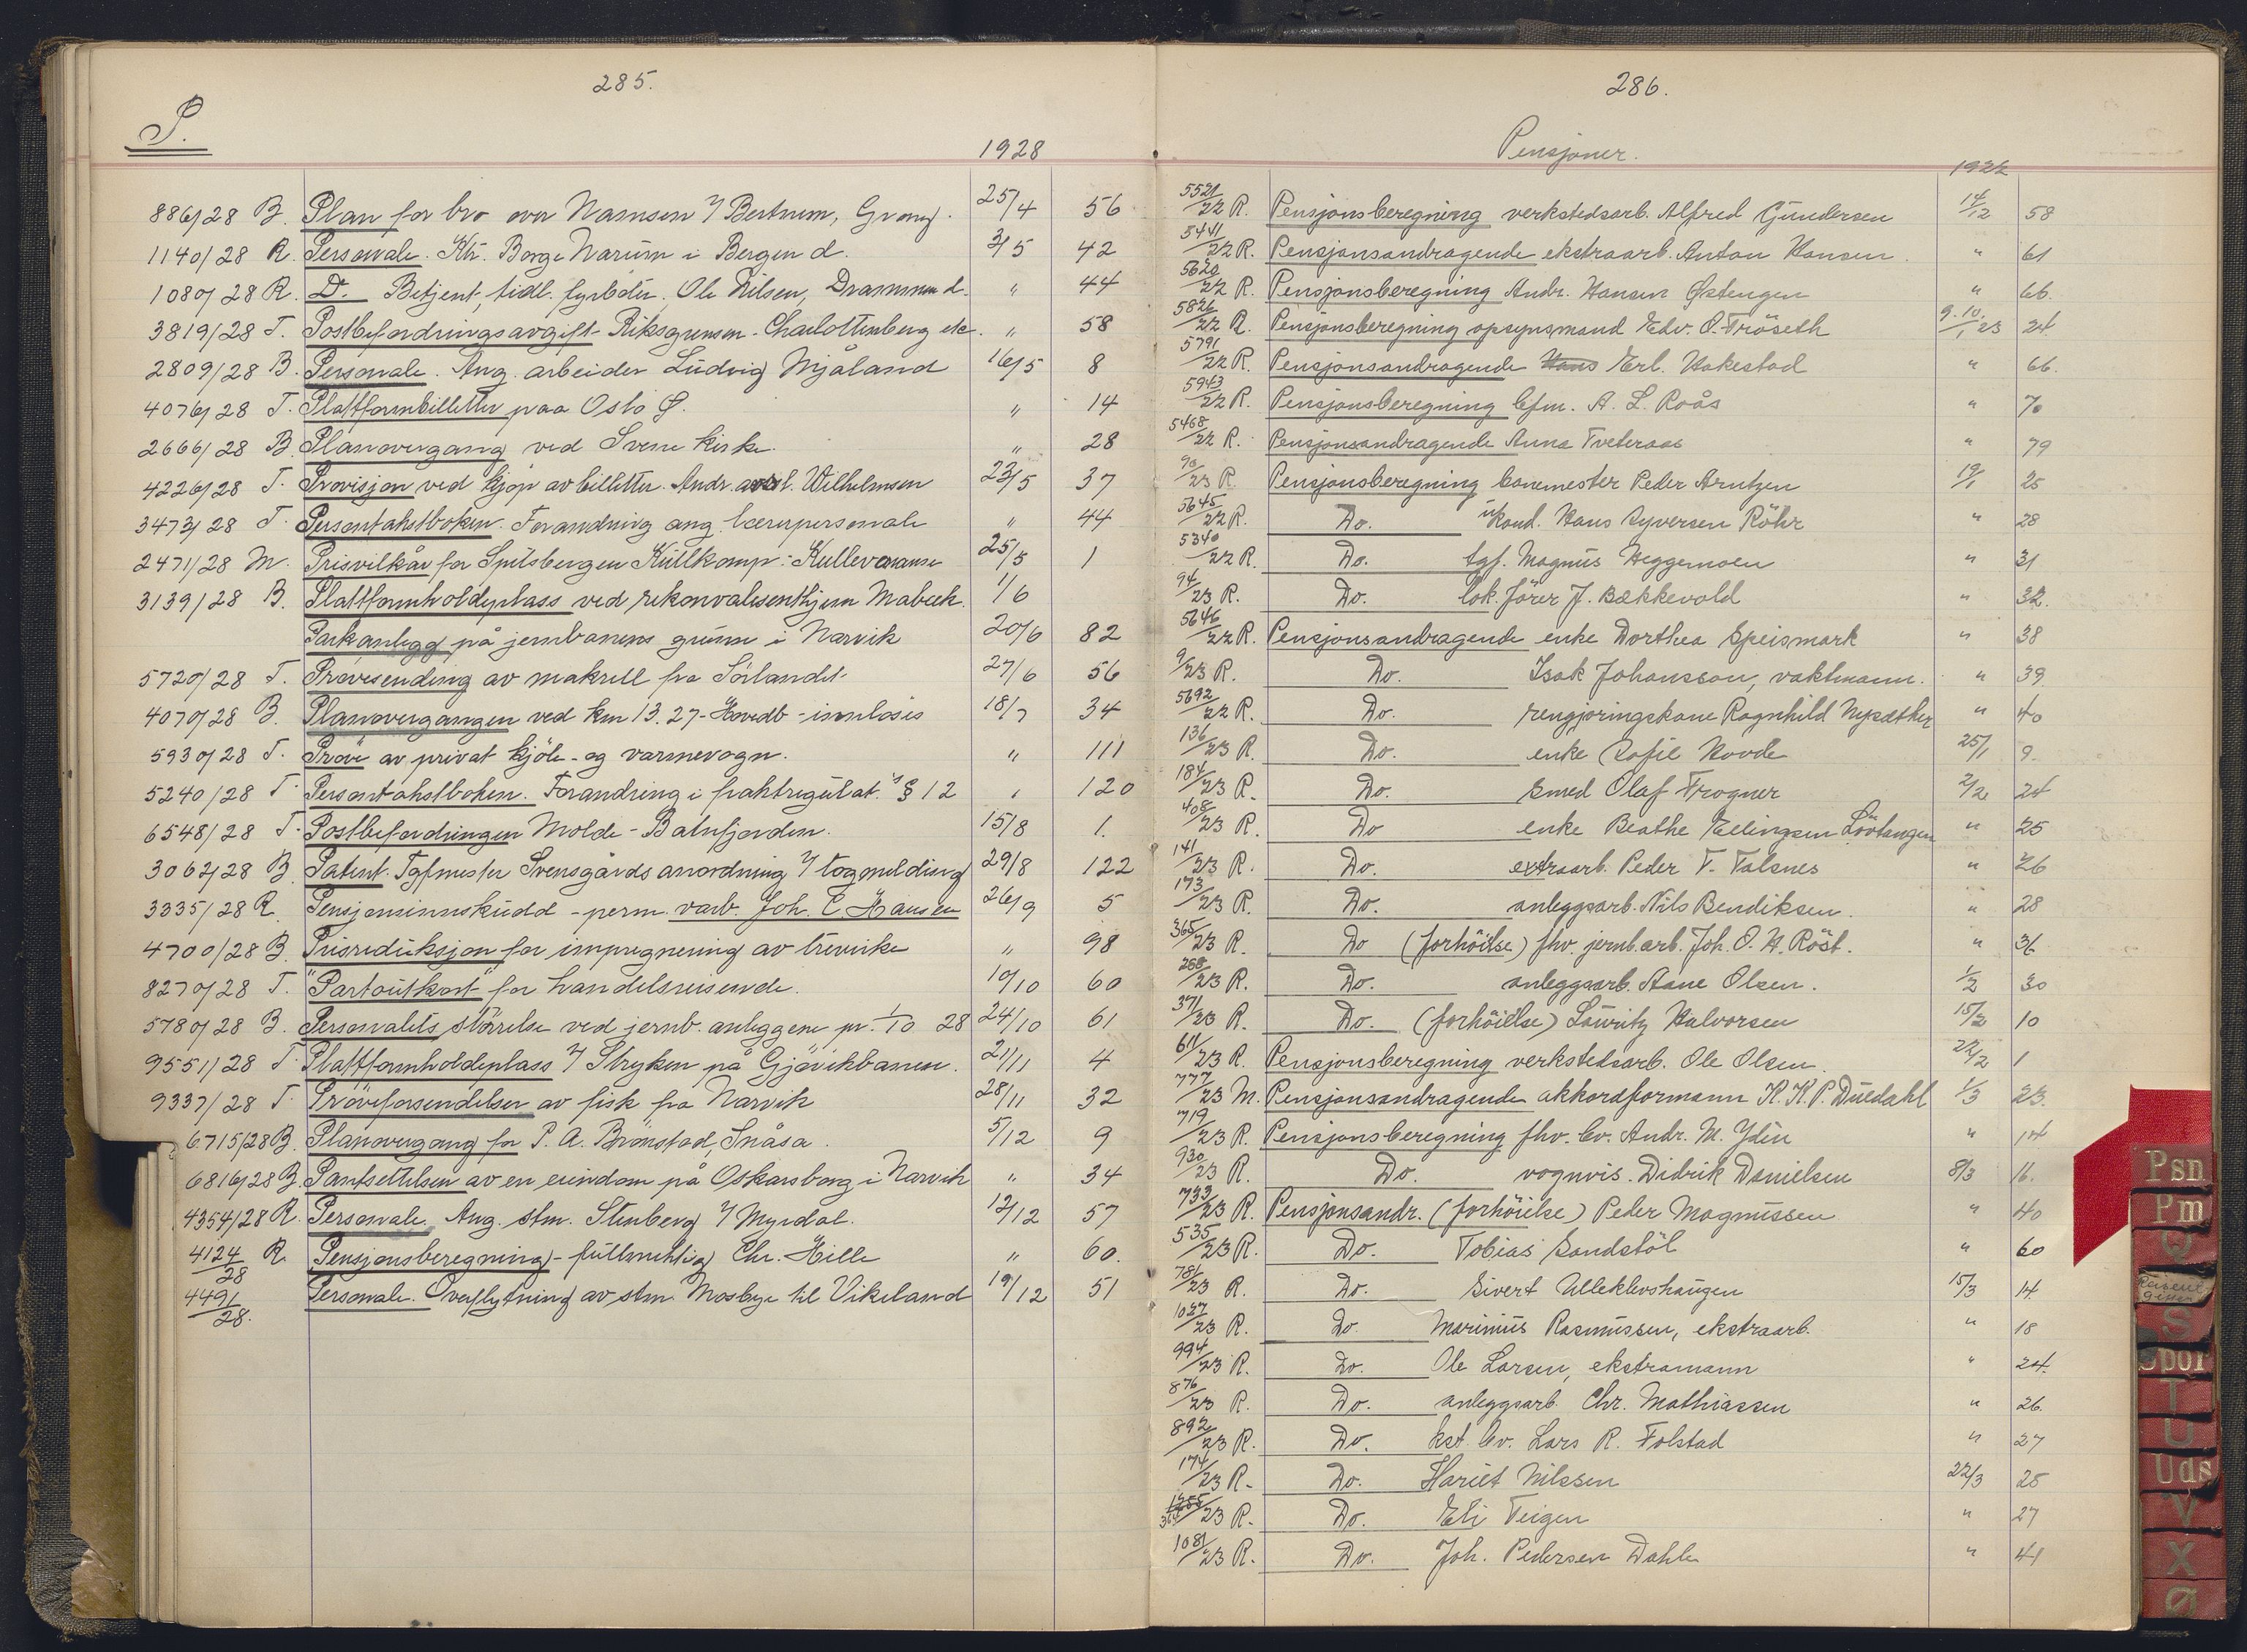 285.
P.
1928
886/28 B. Plan for bro over Namsen v/ Bertnem, Grong. 25/4 56
1140/28 R. Personale. Ktr. Borge Narum i Bergen d. 3/5 42
1080/28 R. Do. Betjent, tidl. fyrböter. Ole Nilsen, Drammen d. " 44
3819/28 T. Postbefordringsavgift Riksgrensen - Charlottenberg etc. " 58
2809/28 B. Personale. Ang. arbeider Ludvig Mjåland 16/5 8
4076/28 T. Plattformbilletter paa Oslo Ø. " 14
2666/28 B. Planovergang ved Svene kirke. " 28
4226/28 T. Provisjon ved kjöp av billetter. Andr. Wilhelmsen 23/5 37
3473/28 T. Persontakstboken. Forandring ang. personale " 44
2471/28 M. Prisvilkår for Spitsbergen Kullkomp: Kulleveranse 25/5 1
3139/28 B. Plattformholdeplass ved rekonvalesenthjem Mabeck. 1/6
Parkanlegg på jernbanens grunn i Narvik 20/6 82
5720/28 T. Prövesending av makrell fra Sörlandet 27/6 56
4070/28 B. Planovergangen ved km 13.27 - Hovedb - innlöses 18/7 34
5930/28 T. Pröve av privat kjöle- og varmevogn. " 111
5240/28 T. Persontakstboken. Forandring i fraktregulat.s § 12 " 120
6548/28 T. Postbefordringen Molde - Batnfjorden. 15/8 1.
3062/28 B. Patent. Tgfmester Svensgårds anordning v/ togmelding 29/8 122
3335/28 R. Pensjonsinnskudd - perm. varb. Joh. C. Hansen 26/9 5
4700/28 B. Prisreduksjon for impregnering av trevirke " 98
8270/28 T. "Partoutkort" for handelsreisende. 10/10 60
5780/28 B. Personalets störrelse ved jernb. anleggene pr. 1/10 28 24/10 61
9551/28 T. Plattformholdeplass v/ Stryken på Gjövikbanen. 21/11 4
9337/28 T. Pröveforsendelser av fisk fra Narvik 28/11 32
6715/28 B. Planovergang for P. A. Brönstad, Snåsa. 5/12 9
6816/28 B. Pantsettelsen av en eiendom på Oskarsborg i Narvik " 34
4354/28 R. Personale. Ang. stm. Stenberg v/ Myrdal. 12/12 57
4124/28 R. Pensjonsberegning - fullmektig Chr. Hille " 60.
4491/28. Personale. Overflytning av stm Mosbye til Vikeland 19/12 51
286.
Pensjoner.
1922
5521/22 R. Pensjonsberegning verkstedsarb. Alfred Gundersen 14/12 58
5441/22 R. Pensjonsandragende ekstraarb. Anton Hansen. " 61
5620/22 R. Pensjonsberegning Andr. Hansen Østengen " 66.
5826/22 R. Pensjonsberegning opsynsmand Edv. O. Fröseth 9.10./1 23 24
5791/22 R. Pensjonsandragende Hans Erl. Hakestad " 66.
5943/22 R. Pensjonsberegning bfm. A. L. Roås " 70
5468/22 R. Pensjonsandragende Anna Tveteraas " 79
90/23 R. Pensjonsberegning banemester Peder Arntzen 19/1 25
5645/22 R. Do. ukond. Hans Syversen Röhr " 28
5340/22 R. Do. tgf. Magnus Heggemoen " 31
94/23 R. Do. lok. förer J. Bækkevold " 32.
5646/22 R. Pensjonsandragende enke Dorthea Speismark " 38
9/23 R. Do. Isak Johansson, vaktmann. " 39
5692/22 R. Do. rengjöringskone Ragnhild Nysæther " 40
136/23 R. Do. enke Sofie Hovde 25/1 9.
184/23 R. Do. smed Olaf Frogner 2/2 24
408/23 R. Do enke Beathe Ellingsen Lövtangen " 25
141/23 R. Do. extraarb. Peder T. Falsnes " 26
173/23 R. Do. anleggsarb. Nils Bendiksen. " 28
365/23 R. Do (forhöielse) fhv. jernb.arb. Joh. O. H. Röst. " 36
268/23 R. Do. anleggsarb. Aane Olsen. 1/2 30
371/23 R. Do. (forhöielse) Lauritz Halvorsen 15/2 10
611/23 R. Pensjonsberegning verkstedsarb. Ole Olsen. 22/2 1
777/23 M. Pensjonsandragende akkordformann K. K. P. Duedahl 1/3 23.
719/23 R. Pensjonsberegning fhv. bv. Andr. M. Ydin " 14
930/23 R. Do. vognvis. Didrik Danielsen 8/3 16.
733/23 R. Pensjonsandr. (forhöielse) Peder Magnussen " 40
535/23 R. Do. Tobias Sandstöl " 60
781/23 R. Do. Sivert Ulleklevshaugen 15/3 14
1037/23 R. Do. Marinius Rasmussen, ekstraarb. " 18
994/23 R. Do. Ole Larsen, ekstramann " 24.
876/23 R. Do. anleggsarb. Chr. Mathiassen " 26.
892/23 R. Do. kst. bv. Lars R. Folstad " 27
174/23 R. Do. Hariet Nilssen 22/3 25
364/23 R. Do. Eli Teigen " 27
1081/23 R. Do. Joh. Pedersen Dahle " 41
Psn
Pm
Q
S
Spor
T
U
Uds
V
X
Ø